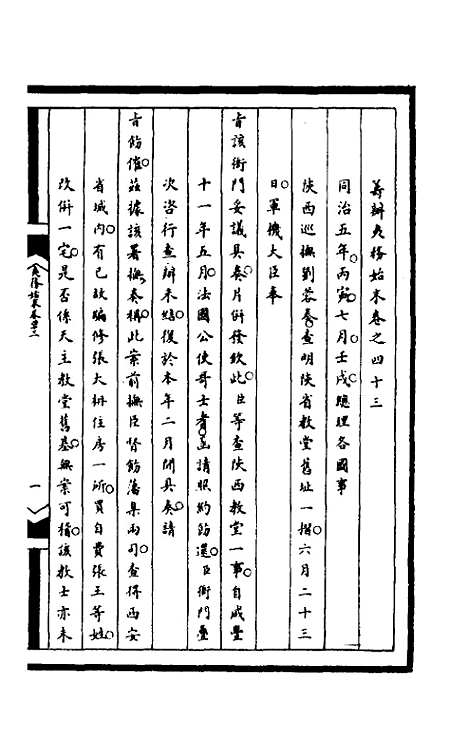 籌辦夷務始末卷之四十三
同治五年丙寅七月壬戌總理各國事
陝西巡撫劉蓉奏查明陝省教堂舊址一摺六月二十三
日軍機大臣奉
旨該衙門妥議具奏片併發欽此臣等查陝西教堂一事自咸豐
十一年五月法國公使哥士耆函請照約飭還臣衙門疊
次咨行查辦未結復於本年二月開具奏請
旨飭催茲據該署撫奏稱此案前撫臣督飭藩臬兩司查得西安
省城內有已故騙修張大枬住房一所買自費張王等姓
改併一宅是否係天主教堂舊基無案可稽該教士亦未
夷務始末卷四十三
一